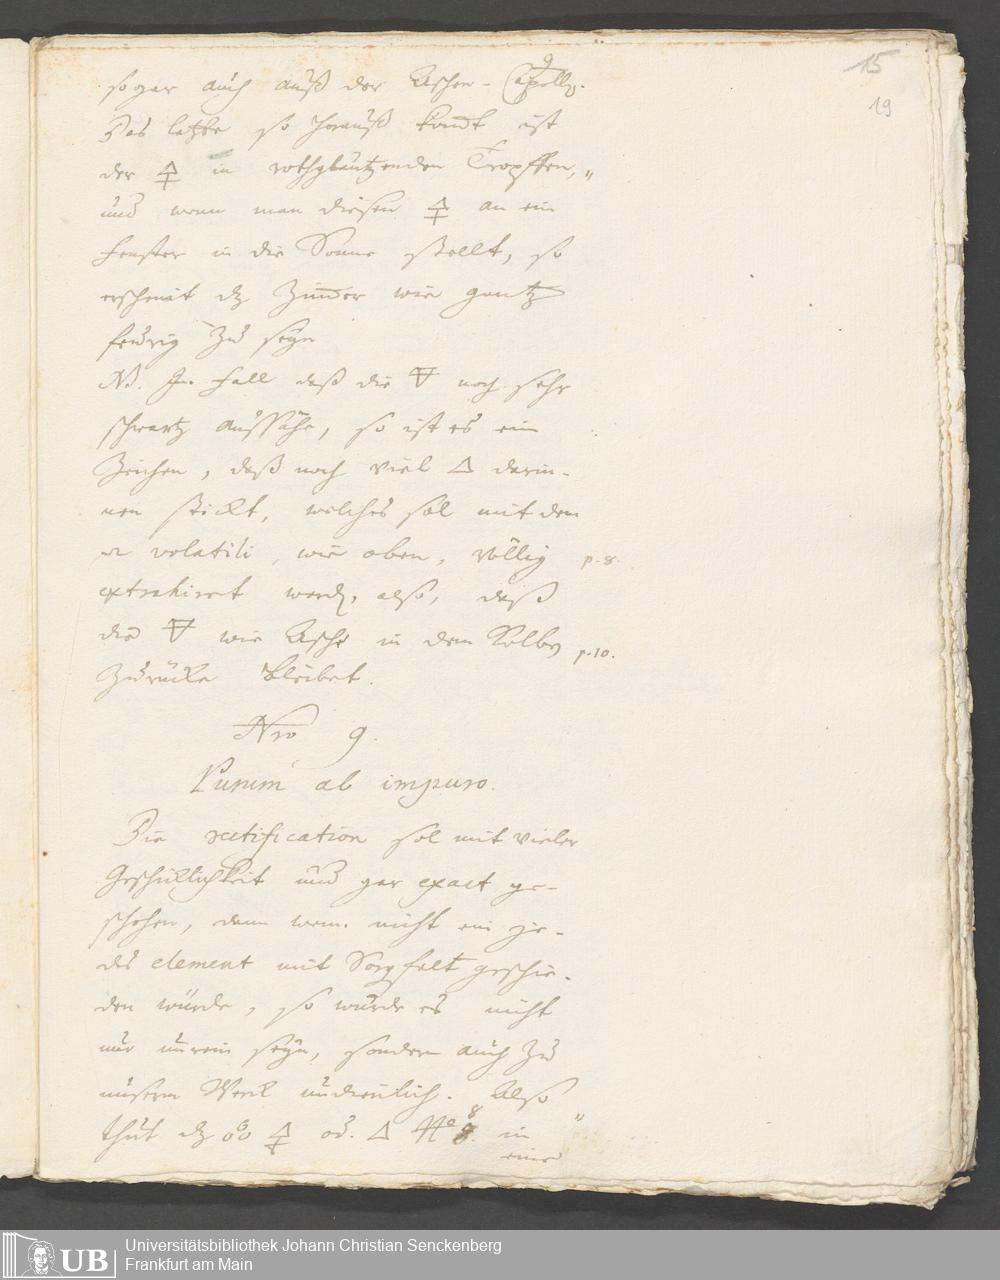 15
19
sogar auch auß der Aschen-Capelle.
Das letzte so herauß komt ist
der 🜍 in rothgläntzenden Tropffen,„
und wenn man diesen 🜍 an ein
Fenster in die Sonne stellt, so
erscheint dz Zimmer wie gantz
feurig zu seyn
NB. Im Fall daß die 🜃 noch sehr
schwartz aussähe, so ist es ein
Zeichen, daß noch viel 🜂 darin-
nen steckt, welches sol mit dem
volatili, wie oben, völlig p. 8.
extrahiret werd., also, daß
die 🜃 wie Asche in dem Kolben p. 10.
Zurücke bleibet.
Nro 9.
Purum ab impuro.
Die rectification sol mit vieler
Geschicklichkeit und gar exact ge-
schehen, dann wenn nicht ein je-
des element mit Sorgfalt geschie-
den würde, so würde es nicht
nur unrein seyn, sondern auch zu
unserm Werck undienlich. Also
thut dz 🜍 od. 🜂 8 in „
eine
Universitätsbibliothek Johann Christian Senckenberg
Frankfurt am Main
UB